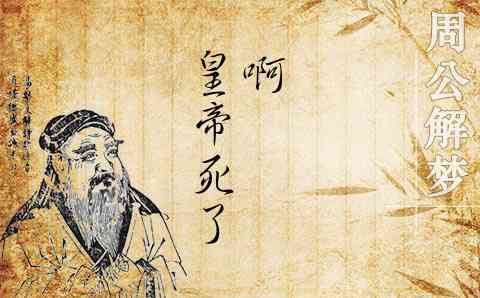 周公解梦
啊
皇帝死了